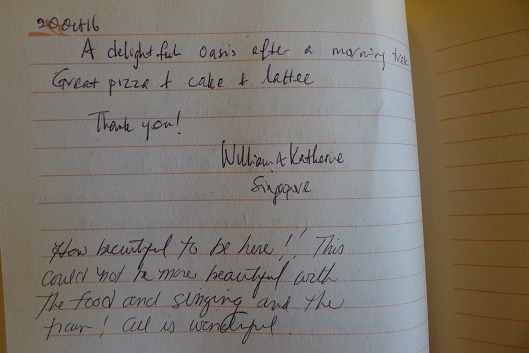 Oct 16
A delightful oasis after a morning
Great pizza & cake & lattee
Thank you!
William & Katherine
Singapore
How beautiful to be here!! This
could not be more beautiful with
the food and singing and the
! All is wonderful.